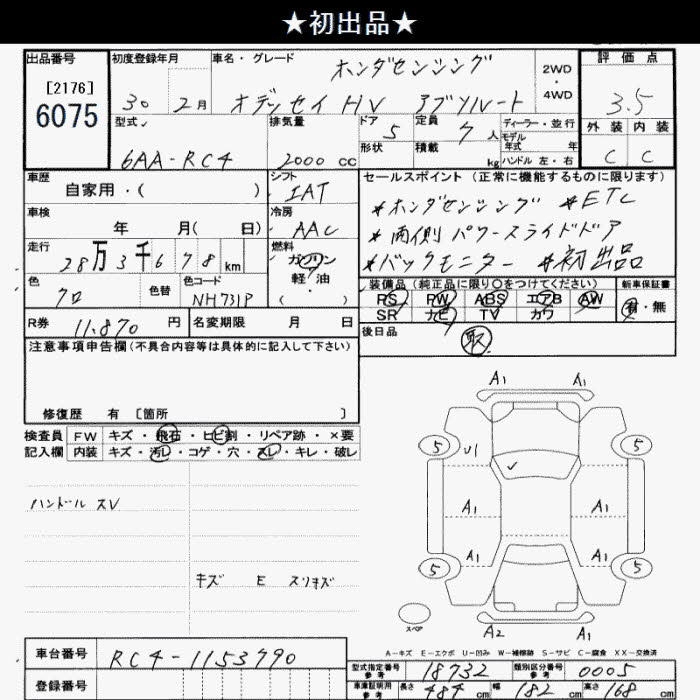 ★初出品★
出品番号
[2176]
6075
初度登録年月
30 2月
車名・グレード
ホンダセンシング
オデッセイHV アブソルート
2WD
・
4WD
評価点
3.5
外装 内装
C C
型式
6AA-RC4
排気量
2000 cc
ドア 5
形状
定員 7 人
積載 kg
ディーラー・並行
モデル年式 年
ハンドル 左・右
車歴
自家用・( )
シフト
IAT
セールスポイント (正常に機能するものに限ります)
*ホンダセンシング *ETC
*両側パワースライドドア
*バックモニター *初出品
車検
年 月( 日)
冷房
AAC
走行
28万3千678km
燃料
ガソリン
軽・油
( ・ )
色
クロ
色替
色コード
NH731P
装備品 (純正品に限り○をつけてください)
PS PW ABS エアB AW
SR ナビ TV カワ
新車保証書
有・無
R券 11,870 円
名変期限 月 日
後日品
取
注意事項申告欄 (不具合内容等は具体的に記入して下さい)
修復歴 有 [箇所 ]
検査員
記入欄
FW キズ・飛石・ヒビ割・リペア跡・×要
内装 キズ・汚レ・コゲ・穴・スレ・キレ・破レ
ハンドル スV
キズ E スリキズ
A1 A1
5 U1 5
A1 A1
A1 A1
5 5
スペア
A2 A1
A-キズ E-エクボ U-凹み W-補修跡 S-サビ C-腐食 XX-交換済
車台番号 RC4-1153790
登録番号
型式指定番号
参考
18732
類別区分番号
参考
0005
車庫証明用
参考
長さ 484 cm 幅 182 cm 高さ 168 cm